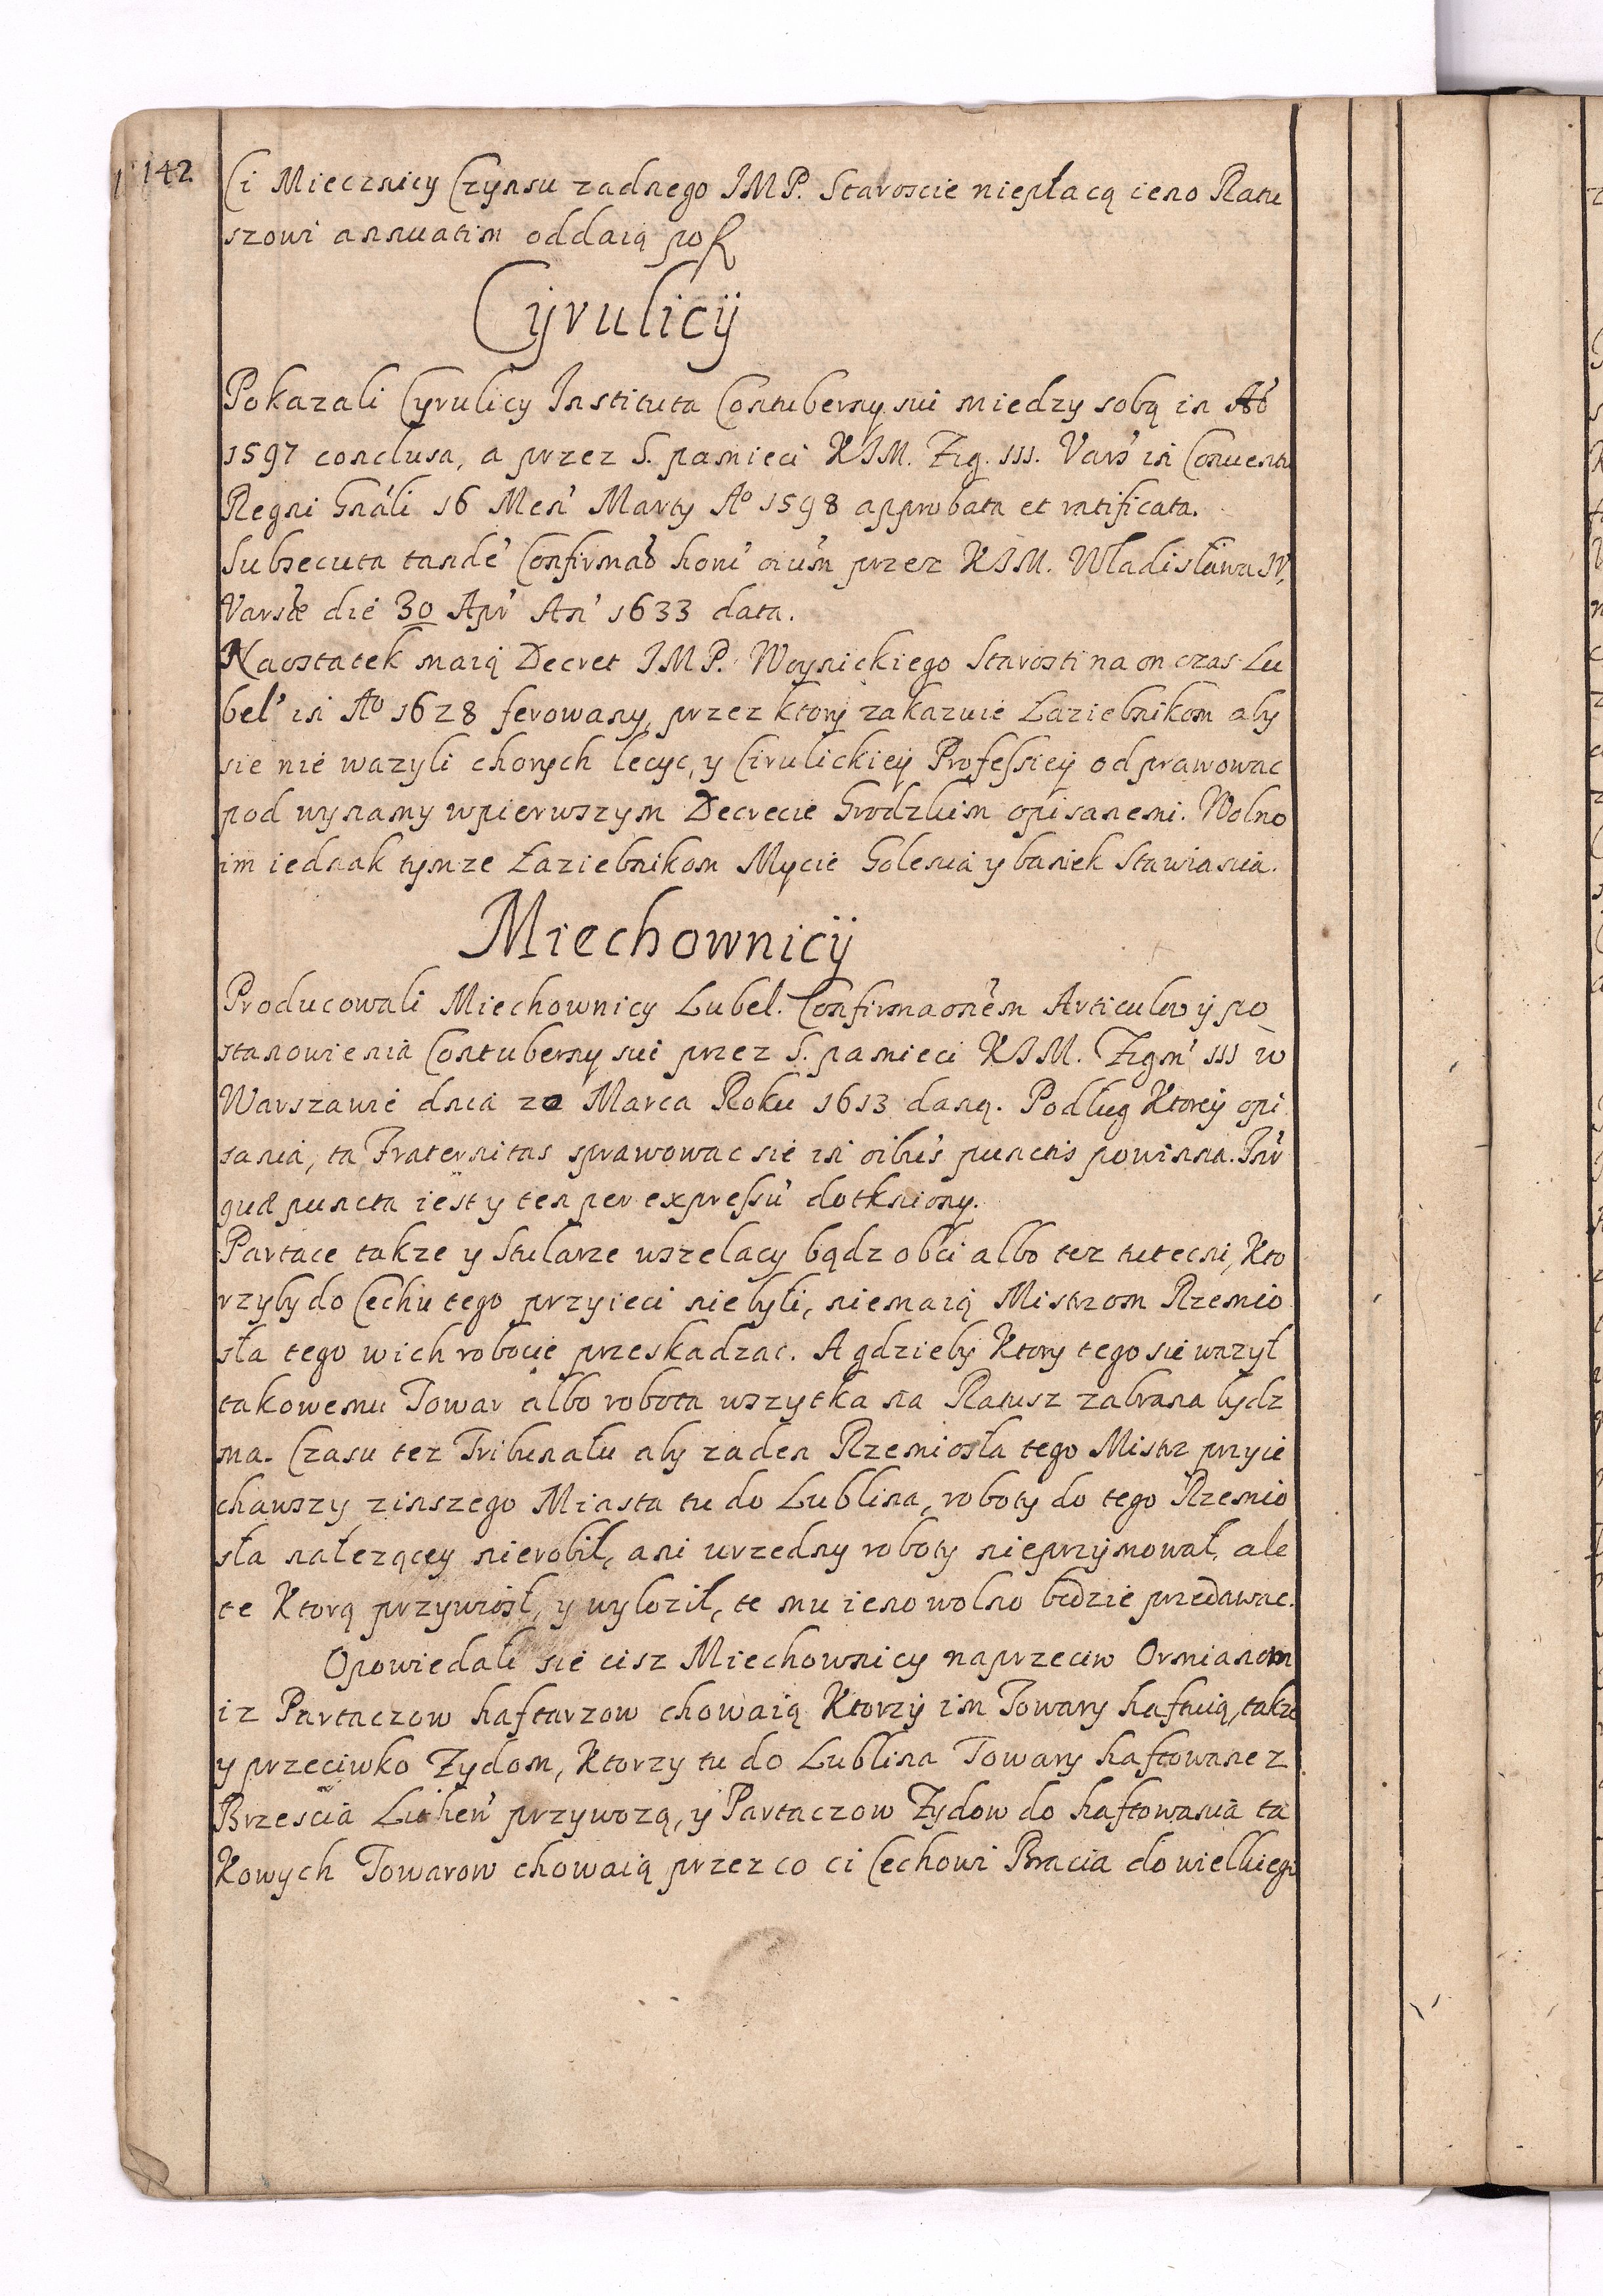 142
Ci Miecznicy Czynsu zadnego JMP. Staroscie niepłacą ieno Ratu
szowi annuatim oddaią po
Cyrulicÿ
Pokazali Cyrulicy Instituta Contuberny sui miedzy sobą in Aõ
1597 conclusa, a przez S. pamieci KJM. Zig. III. Vars' in Conuentu
Regni Gnáli 16 Men' Marty Aº 1598 approbata et ratificata.
Subsecuta tande' Confirmaõ horu' oiu'm przez KJM. Wladisława IV,
Varsæ die 30 Apr' An' 1633 data.
Naostatek maią Decret JMP. Woynickiego Starosti na on czas Lu
bel' in Aº 1628 ferowany, przez ktory zakazuie Łaziebnikom aby
sie nie wazyli chorych lecyc, y Cirulickiey Professiey odprawowac
pod wynamy wpierwszym Decrecie Grodzkim opisanemi. Wolno
im iednak tymze Łaziebnikom Mycie Golenia y baniek Stawiania.
Miechownicÿ
Producowali Miechownicy Lubel. Confirmaonẽm Articulow ÿ po
stanowienia Contuberny sui przez S. pamieci KJM. Zigm' III w
Warszawie dnia 20 Marca Roku 1613 daną. Podług Ktorey opi
sania, ta Fraternitas sprawowac sie in oibu's punctis powinna. Int'
quæ puncta iest y ten per expressu' dotkniony.
Partace takze y Stularze wszelacy bądz obci albo tez tutecni, Kto
rzyby do Cechu tego przyieci niebyli, niemaią Mistrzom Rzemio
sła tego wich robocie przeskadzac. A gdzieby Ktory tego sie wazył
takowemu Towar albo robota wszytka na Ratusz zabrana bydz
ma. Czasu tez Tribunału aby zaden Rzemiosła tego Mistrz przyie
chawszy zinszego Miasta tu do Lublina, roboty do tego Rzemio
sła nałezącey nierobił, ani urzedny roboty nieprzymował, ale
te Ktorą przywiosł, y wyłozil, te mu ieno wolno bedzie przedawac.
Opowiedali sie cisz Miechownicy naprzeciw Ormianom
iz Partaczow haftarzow chowaią Ktorzy im Towary haftuią, takze
y przeciwko Zydom, Ktorzy tu do Lublina Towary haftowane z
Brzescia Lithew' przywozą, y Partaczow Zydow do haftowania ta
Kowych Towarow chowaią przez co ci Cechowi Bracia do wielkiego